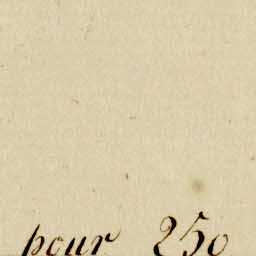 pour 250